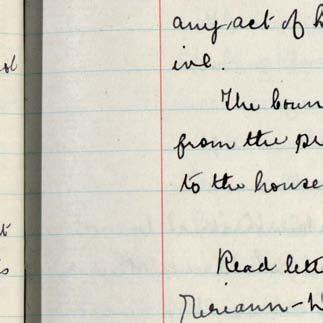 any act of
ive.
The Coun
from the pe
to the house
Read lett